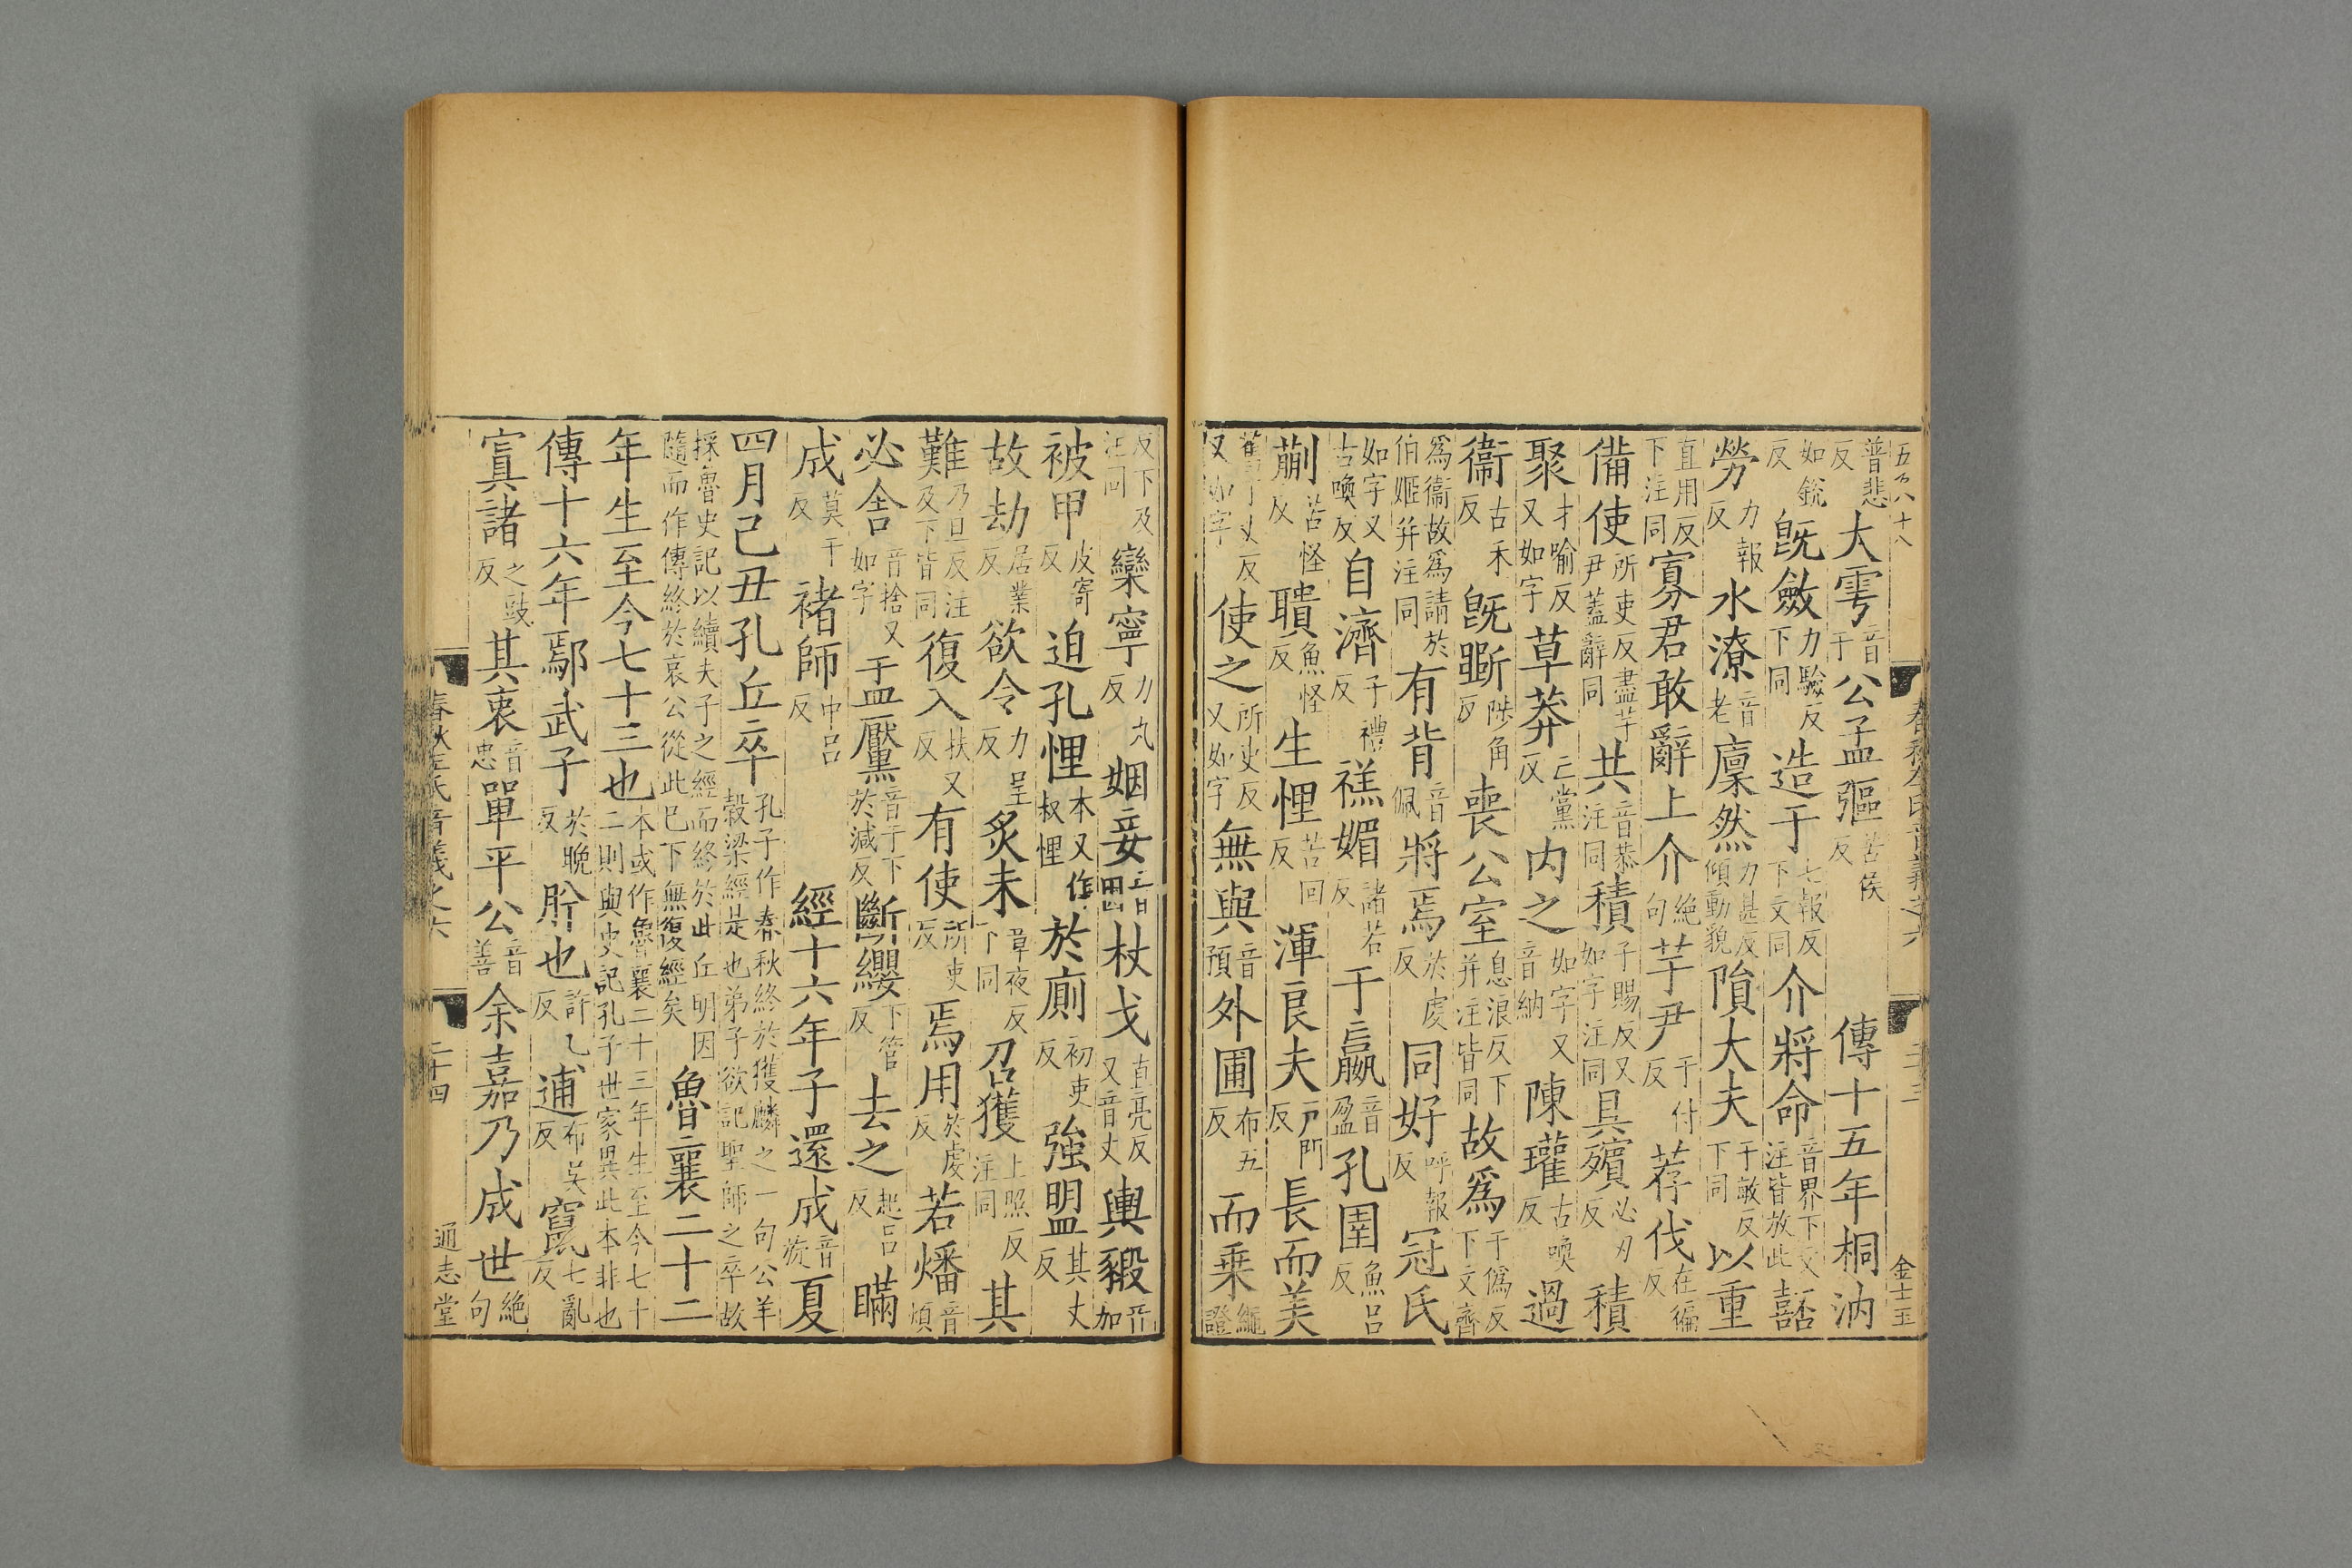 五百八十八 春秋左氏音義之六 三十三 金士玉
普悲反 大雩 音于 公孟彄 苦侯反 傳十五年桐汭
如銳反 旣斂 力驗反下同 造于 七報反下文同 介將命 音界下文注皆放此 嚭
勞 力報反 水潦 音老 廩然 力甚反傾動貌 隕大夫 于敏反下同 以重
直用反下注同 寡君敢辭上介 絶句 芋尹 于付反 荐伐 在徧反
備使 所吏反盡芋尹蓋辭同 共 音恭注同 積 子賜反又如字注同 具殯 必刃反 積
聚 才喻反又如字 草莽 亡黨反 内之 如字又音納 陳瓘 古喚反 過
衞 古禾反 旣斲 陟角反 喪公室 息浪反下并注皆同 故爲 于僞反下文齊
爲衞故爲請於伯姬并注同 有背 音佩 將焉 於虔反 同好 呼報反 冠氏
如字又古喚反 自濟 子禮反 禚媚 諸若反 于嬴 音盈 孔圉 魚呂反
蒯 苦怪反 聵 魚怪反 生悝 苦回反 渾良夫 戸門反 長而美
又如字 使之 所吏反又如字 無與 音預 外圃 布五反 而乗 繩證
反下及注同 欒寧 力丸反 姻妾 音因 杖戈 直亮反又音丈 輿豭 音加
被甲 皮寄反 迫孔悝 本又作叔悝 於廁 初吏反 強盟 其丈反
故劫 居業反 欲令 力呈反 炙未 章夜反下同 召獲 上照反注同 其
難 乃旦反注及下皆同 復入 扶又反 有使 所吏反 焉用 於虔反 若燔 音煩
必舍 音捨又如字 盂黶 音于下於減反 斷纓 下管反 去之 起呂反 瞞
成 莫干反 褚師 中呂反 經十六年子還成 音旋 夏
四月己丑孔丘卒 孔子作春秋終於獲麟之一句公羊穀梁經是也弟子欲記聖師之卒故
採魯史記以續夫子之經而終於此丘明因隨而作傳終於哀公從此已下無復經矣 魯襄二十二
年生至今七十三也 本或作魯襄二十三年生至今七十二則與史記孔子世家異此本非也
傳十六年鄢武子 於晚反 肸也 許乙反 逋 布吴反 竄 七亂反
寘諸 之豉反 其衷 音忠 單平公 音善 余嘉乃成世 絶句
春秋左氏音義之六 三十四 通志堂